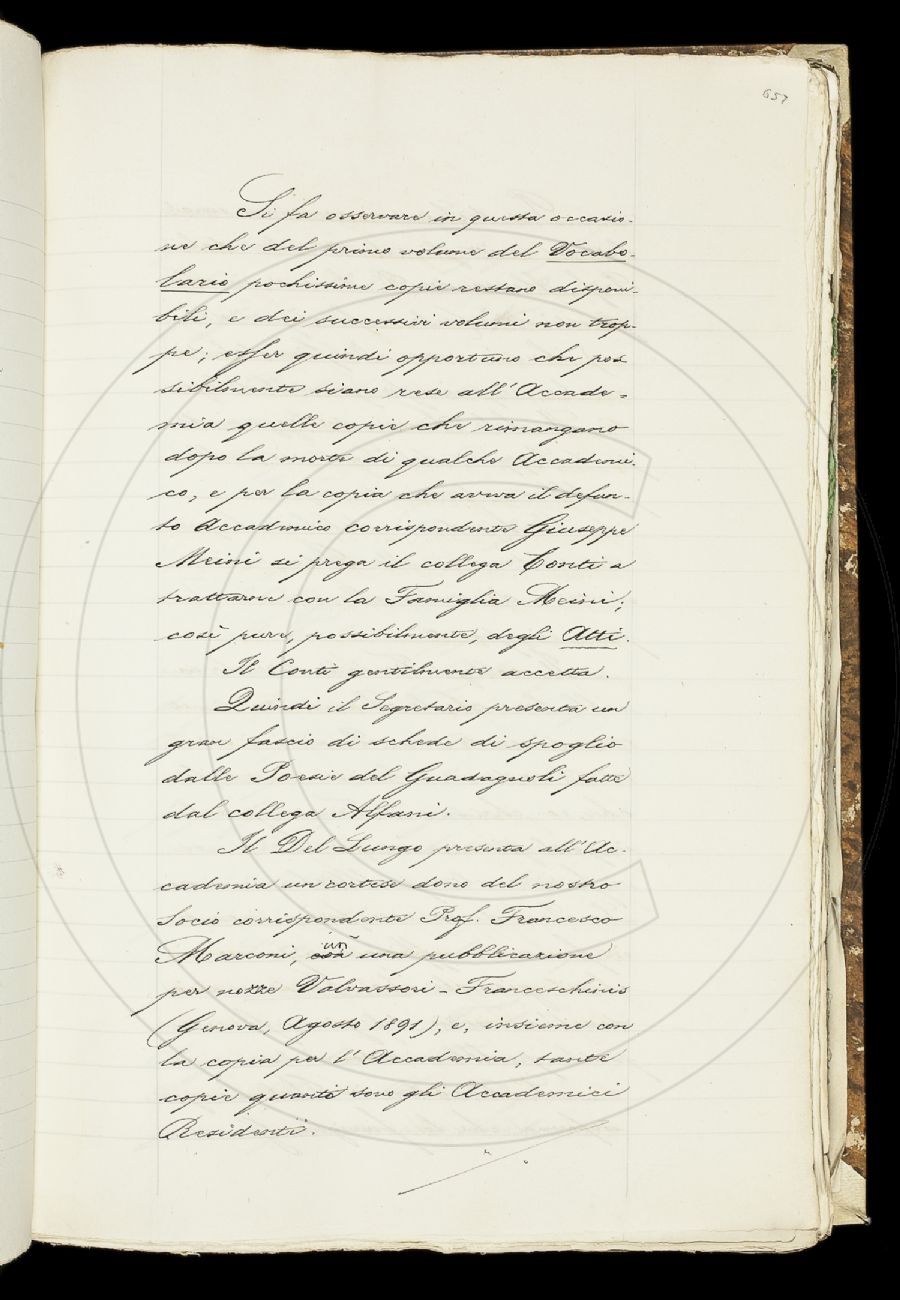 657
Si fa osservare in questa occasio-
ne che del primo volume del Vocabo-
lario pochissime copie restano disponi-
bili, e dei successivi volumi non trop-
pe; esser quindi opportuno che pos
sibilmente siano rese all'Accade-
mia quelle copie che rimangano
dopo la morte di qualche Accademi-
co, e per la copia che aveva il defun-
to Accademico corrispondente Giuseppe
Meini si prega il collega Conti a
trattarne con la Famiglia Meini;
così pure, possibilmente, degli Atti.
Il Conti gentilmente accetta.
Quindi il Segretario presenta un
gran fascio di schede di spoglio
dalle Poesie del Guadagnoli fatte
dal collega Alfani.
Il Del Lungo presenta all'Ac-
cademia un cortese dono del nostro
Socio corrispondente Prof. Francesco
Marconi, in una pubblicazione
per nozze Valvassori-Franceschinis
(Genova, Agosto 1891), e, insieme con
la copia per l'Accademia, tante
copie quanti sono gli Accademici
Residenti.